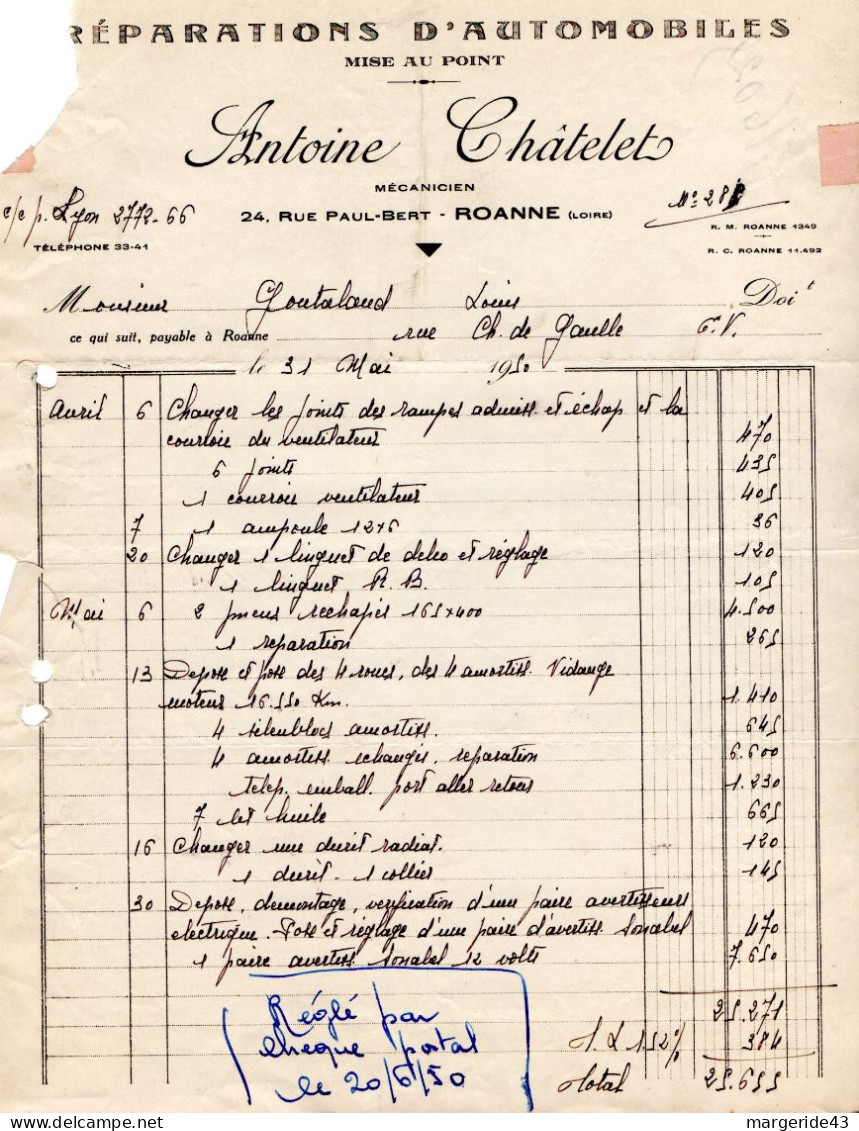 RÉPARATIONS D'AUTOMOBILES
MISE AU POINT
Antoine Châtelet
MÉCANICIEN
c/c p. Lyon 2772-66
24, RUE PAUL-BERT - ROANNE (LOIRE)
TÉLÉPHONE 33-41
R. M. ROANNE 1349
R. C. ROANNE 11.492
Monsieur Goutaland Louis Doit
ce qui suit, payable à Roanne rue Ch. de Gaulle E.V.
le 31 Mai 1950
Avril 6 Changer les joints des rampes admiss. et échap et la
courroie du ventilateur 470
6 joints 435
1 courroie ventilateur 405
7 1 ampoule 12x6 36
20 Changer 1 linguet de delco et réglage 120
1 linguet R.B. 105
Mai 6 2 pneus rechapés 165x400 4.500
1 reparation 265
13 Depose et pose des 4 roues, des 4 amortiss. Vidange
moteur 16.550 Km. 1.410
4 silenblocs amortiss. 645
4 amortiss echangés, reparation 6.600
telep. emball. port aller retour 1.230
7 let huile 665
16 Changer une durit radiat. 120
1 durit - 1 collier 145
30 Depose, demontage, verification d'une paire avertisseurs
electrique. Pose et réglage d'une paire d'avertiss Sonabel 470
1 paire avertiss Sonabel 12 volts 7.650
25.271
T.L 1.52% 384
Total 25.655
Réglé par
cheque postal
le 20/6/50
margeride43